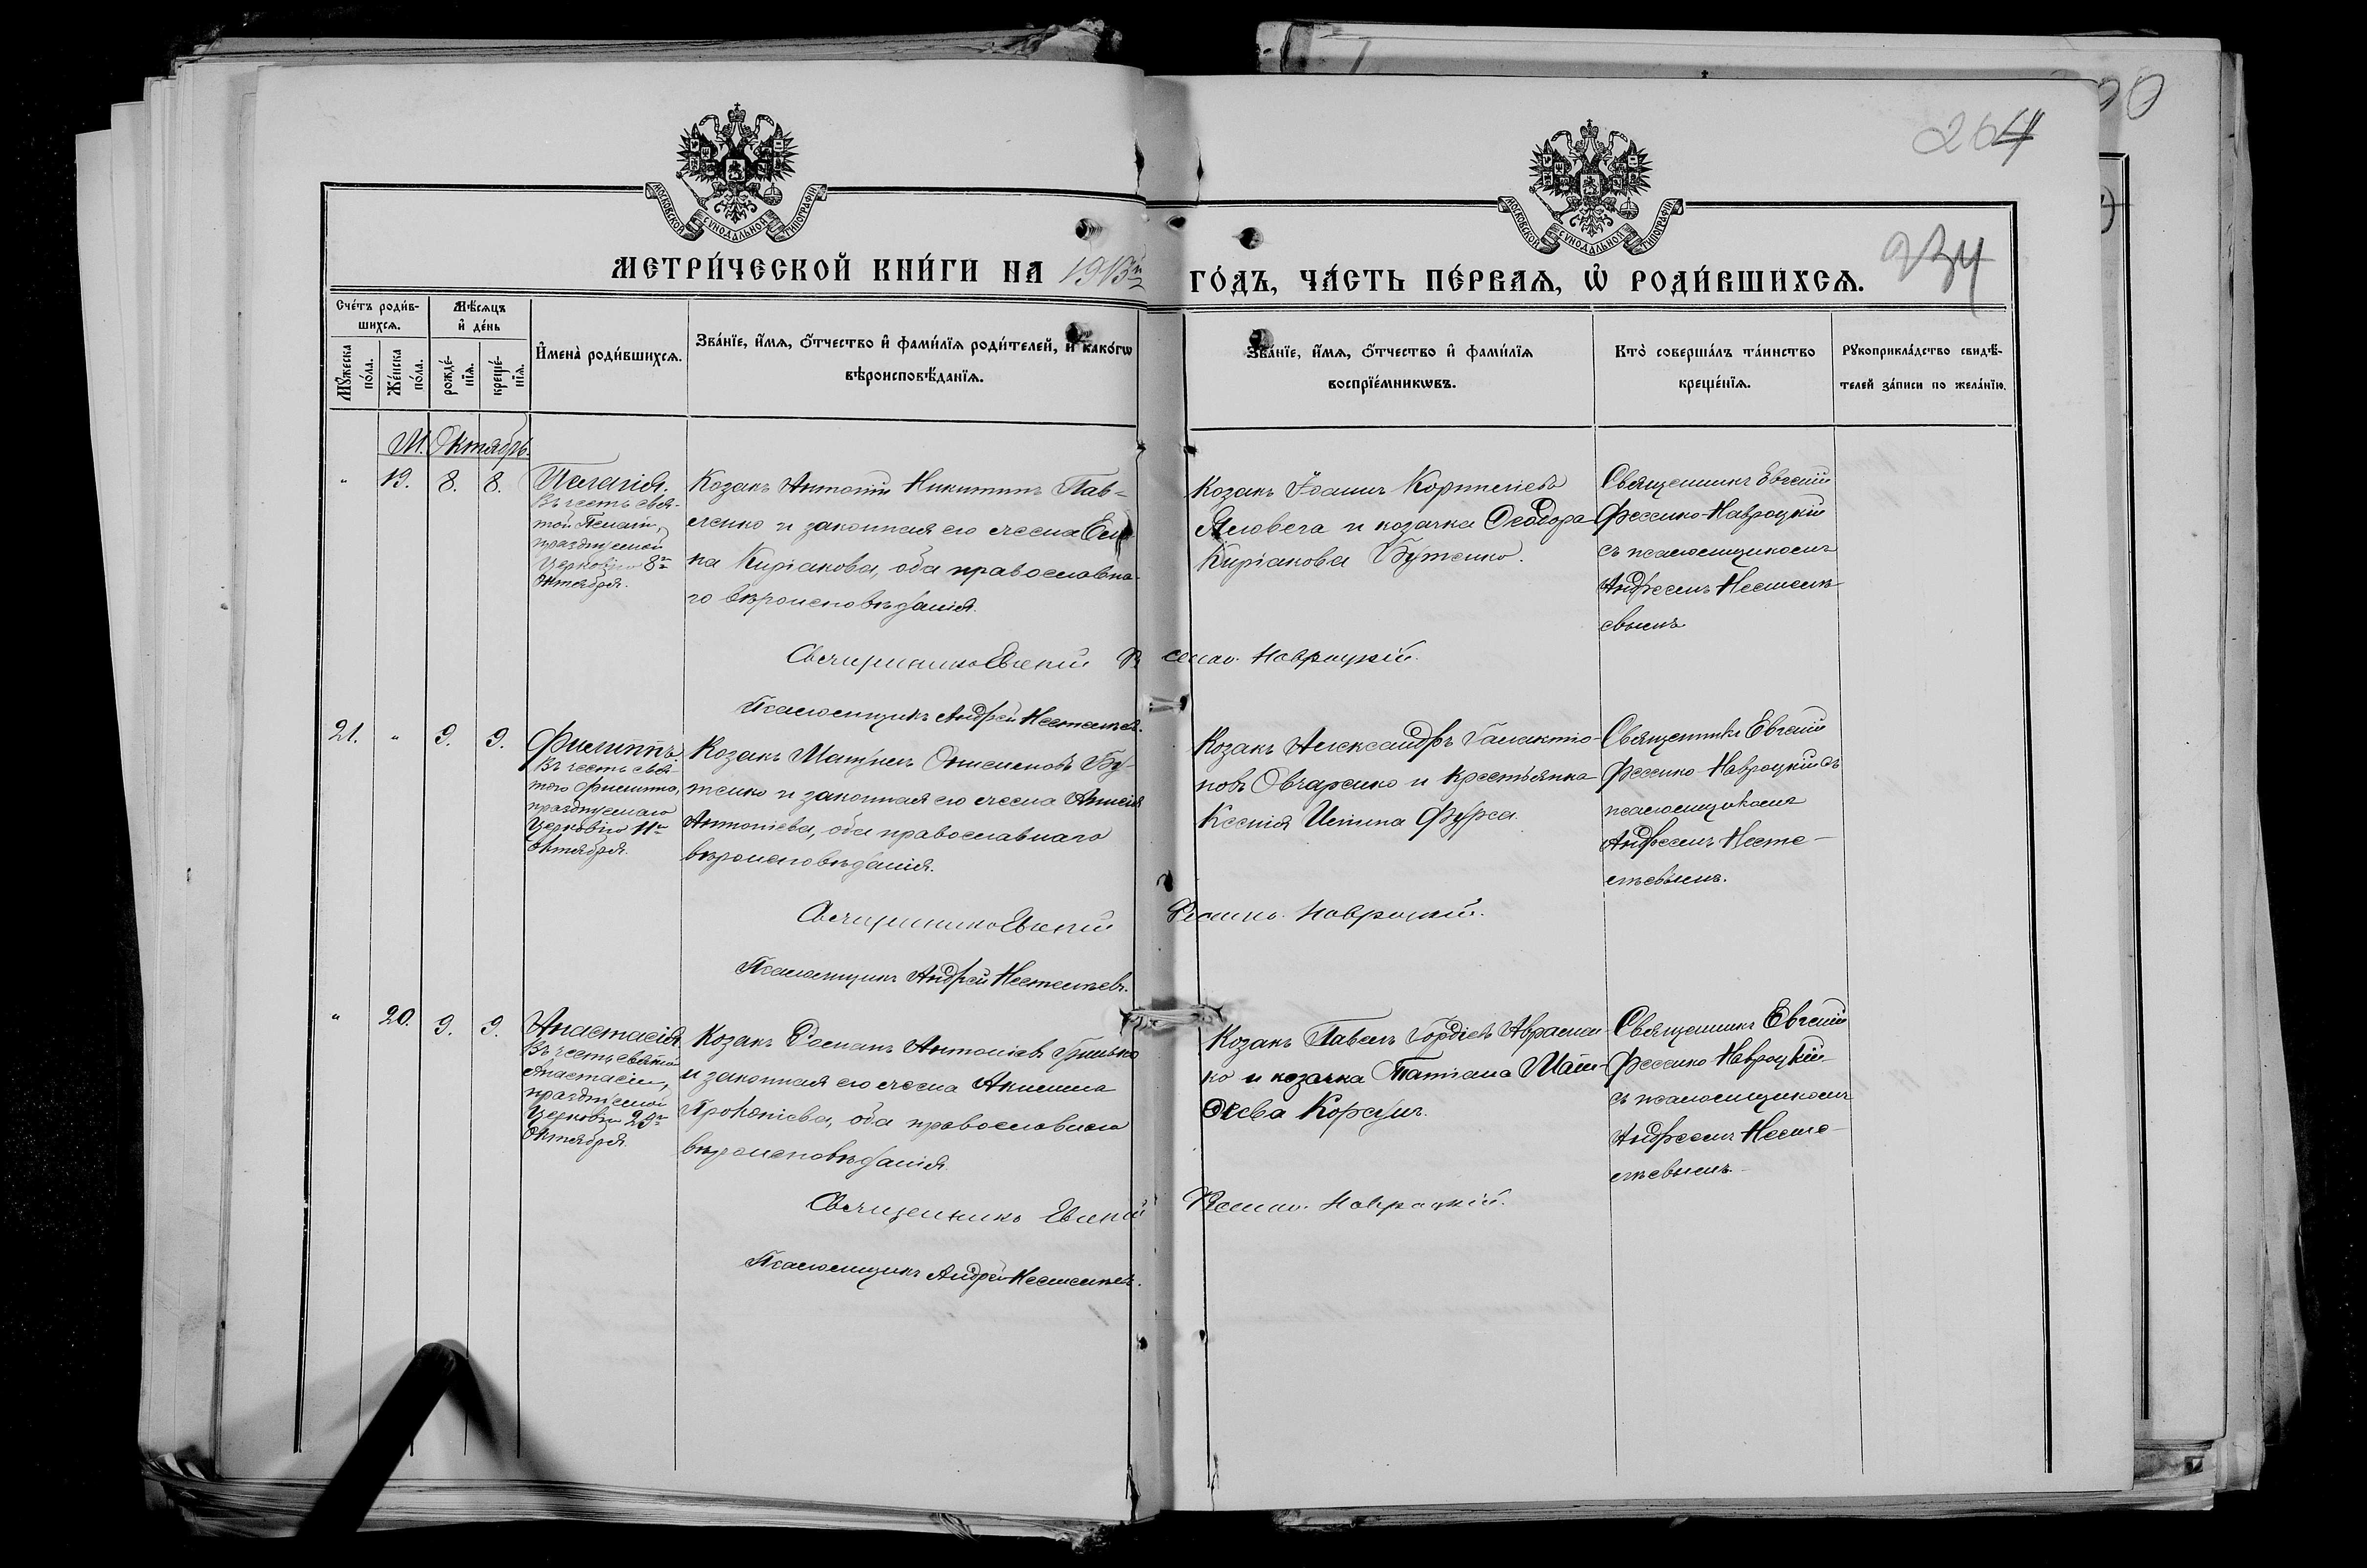 264
МОСКОВСКОЙ СѴНОДАЛЬНОЙ ТИПОГРАФІИ
МОСКОВСКОЙ СѴНОДАЛЬНОЙ ТИПОГРАФІИ
234
МЕТРИ́ЧЕСКОЙ КНИ́ГИ НА 1913й ГО́ДЪ, ЧА́СТЬ ПЕ́РВАѦ, Ѡ РОДИ́ВШИХСѦ.
Сче́тъ роди́в-
шихсѧ.
Мꙋ́жеска по́ла.
Же́нска по́ла.
Мѣ́сѧцъ
и де́нь
рожде́-
нїѧ.
креще́-
нїѧ.
Имена̀ роди́вшихсѧ.
Зва́нїе, и́мѧ, о́тчество и фами́лїѧ роди́телей, и како́гѡ
вѣроисповѣ́данїѧ.
Зва́нїе, и́мѧ, о́тчество и фами́лїѧ
воспрїе́мникѡвъ.
Кто̀ соверша́лъ та́инство
креще́нїѧ.
Рꙋкоприкла́дство свидѣ́-
телей за́писи по жела́нїю.
М. Октябрь.
" 19. 8. 8.
Пелагія.
Въ честь свя-
той Пелагіи,
празднуемой
Церковію 8го
Октября.
Козакъ Антоній Никитинъ Пав-
ленко и законная его жена Еле-
на Киріакова, оба православна-
го вѣроисповѣданія.
Козакъ Іоаннъ Корниліевъ
Яловега и козачка Ѳеодора
Киріакова Бутенко.
Священникъ Евгеній
Фесенко-Навроцкій
съ псаломщикомъ
Андреемъ Нестелѣ-
евымъ
Священникъ Евгеній Фесенко-Навроцкій.
Псаломщикъ Андрей Нестелѣевъ.
21. " 9. 9.
Филиппъ.
Въ честь свя-
того Филиппа,
празднуемаго
Церковію 11го
Октября.
Козакъ Бу-
тенко и законная его жена Анисія
Антоніева, оба православнаго
вѣроисповѣданія.
Козакъ Александръ Галактіо-
новъ Овчаренко и крестьянка
Ксенія Фурса
Священникъ Евгеній
Фесенко-Навроцкій съ
псаломщикомъ
Андреемъ Несте-
лѣевымъ.
Священникъ Евгеній Фесенко-Навроцкій.
Псаломщикъ Андрей Нестелѣевъ.
" 20. 9. 9.
Анастасія
Въ честь святой
Анастасіи,
празднуемой
Церковію 29го
Октября.
Козакъ Романъ Антоніевъ Гринько
и законная его жена Акилина
Прокопіева, оба православнаго
вѣроисповѣданія.
Козакъ Павелъ Гордіевъ Аврамен-
ко и козачка Татіана Мат-
ѳіева Корсунъ.
Священникъ Евгеній
Фесенко-Навроцкій
съ псаломщикомъ
Андреемъ Несте-
лѣевымъ.
Священникъ Евгеній Фесенко-Навроцкій.
Псаломщикъ Андрей Нестелѣевъ.